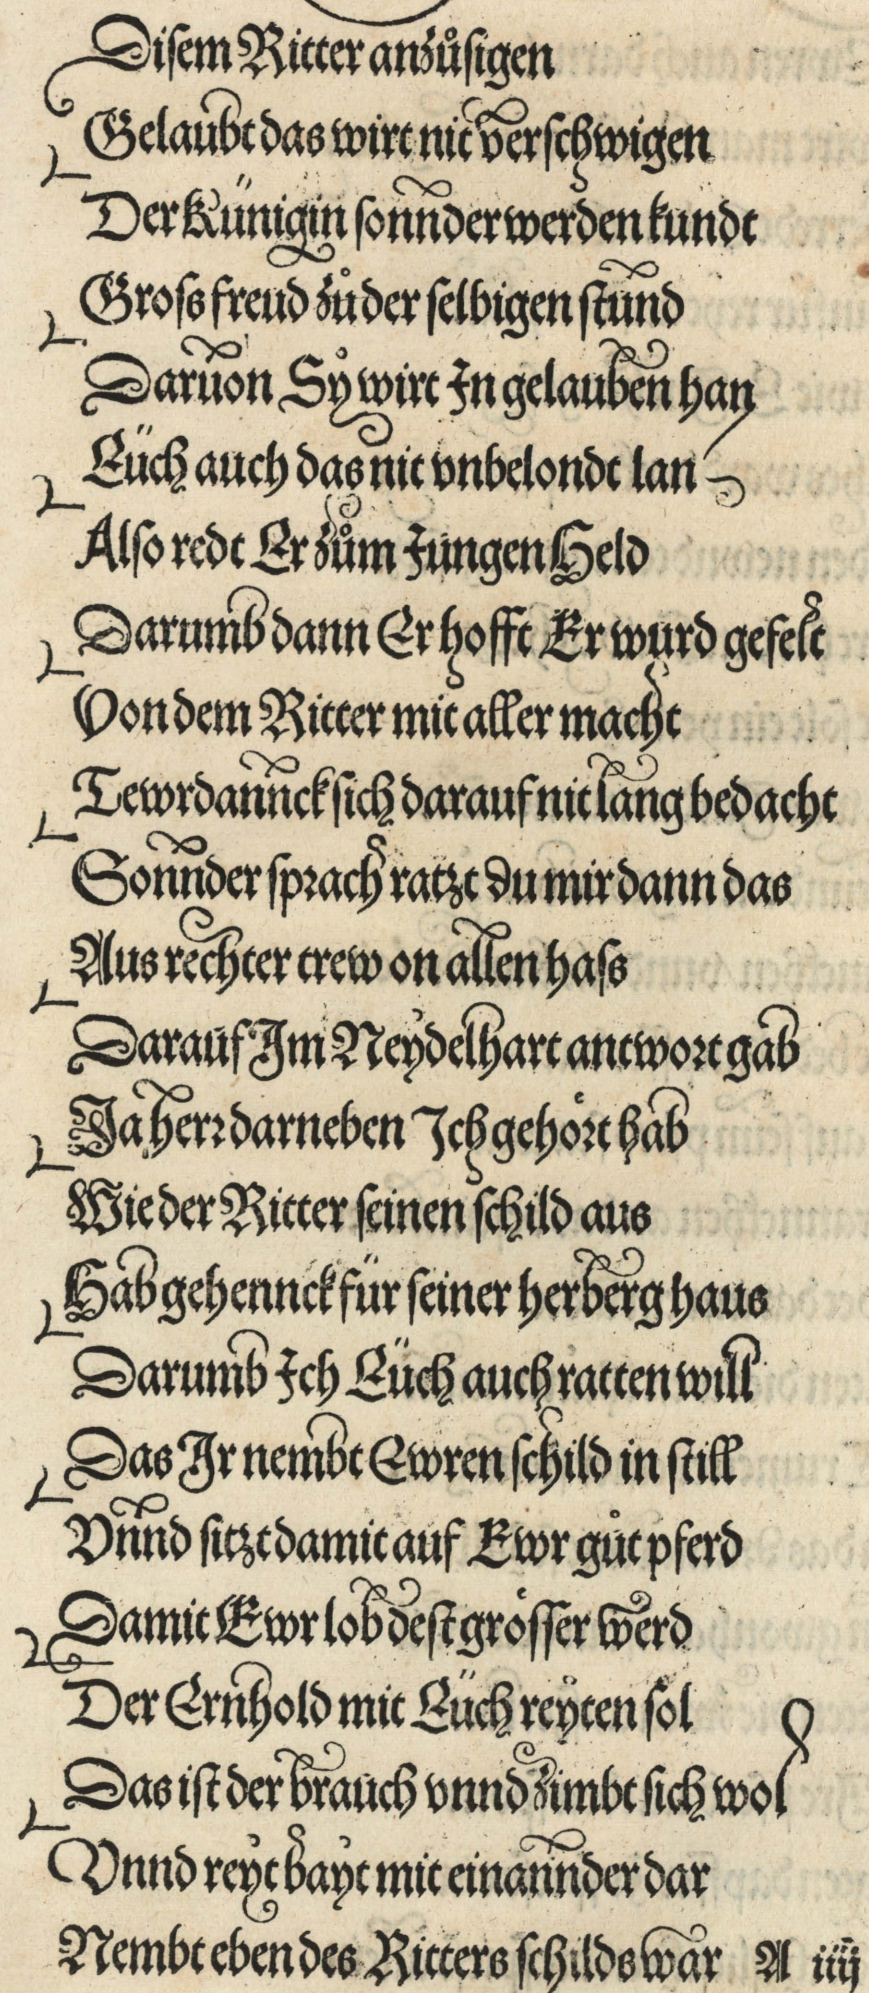 Disem Ritter anzůsigen
Gelaubt das wirt nit verschwigen
Der Künigin sonnder werden kundt
Gross freud zů der selbigen stund
Daruon Sy wirt In gelauben han
Eüch auch das nit vnbelondt lan
Also redt Er zům Jungen Held
Darumb dann Er hofft Er wurd gefelt
Von dem Ritter mit aller macht
Tewrdannck sich darauf nit lang bedacht
Sonnder sprach ratzt du mir dann das
Aus rechter trew on allen hass
Darauf Im Neydelhart antwort gab
Ja herr darneben Ich gehört hab
Wie der Ritter seinen schild aus
Hab gehennckt für seiner herberg haus
Darumb Ich Eüch auch ratten will
Das Ir nembt Ewren schild in still
Vnnd sitzt damit auf Ewr gůt pferd
Damit Ewr lob dest grösser werd
Der Ernhold mit Eüch reyten sol
Das ist der brauch vnnd zimbt sich wol
Vnnd reyt bayt mit einannder dar
Nembt eben des Ritters schilds war A iiij